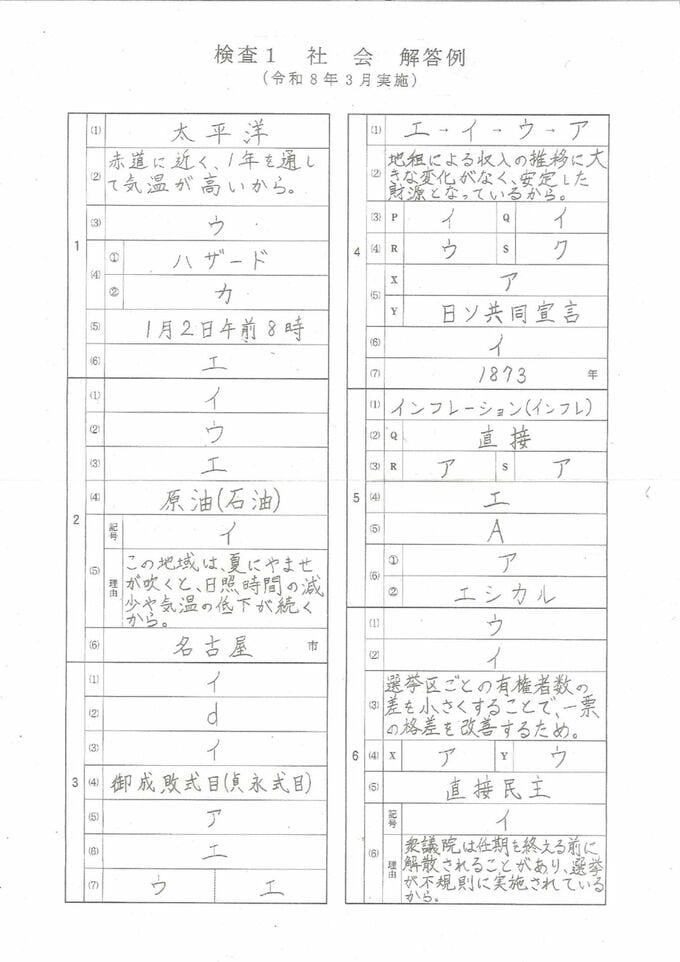 検査1 社 会 解答例
(令和8年3月実施)
1
(1) 太平洋
(2) 赤道に近く、1年を通し
て気温が高いから。
(3) ウ
(4) ① ハザード
② カ
(5) 1月2日午前8時
(6) エ
2
(1) イ
(2) ウ
(3) エ
(4) 原油(石油)
(5) 記号 イ
理由 この地域は、夏にやませ
が吹くと、日照時間の減
少や気温の低下が続く
から。
(6) 名古屋 市
3
(1) イ
(2) d
(3) イ
(4) 御成敗式目(貞永式目)
(5) ア
(6) エ
(7) ウ エ
4
(1) エ→イ→ウ→ア
(2) 地租による収入の推移に大
きな変化がなく、安定した
財源となっているから。
(3) P イ Q イ
(4) R ウ S ク
(5) X ア
Y 日ソ共同宣言
(6) イ
(7) 1873 年
5
(1) インフレーション(インフレ)
(2) Q 直接
(3) R ア S ア
(4) エ
(5) A
(6) ① ア
② エシカル
6
(1) ウ
(2) イ
(3) 選挙区ごとの有権者数の
差を小さくすることで、一票
の格差を改善するため。
(4) X ア Y ウ
(5) 直接民主
(6) 記号 イ
理由 衆議院は任期を終える前に
解散されることがあり、選挙
が不規則に実施されている
から。